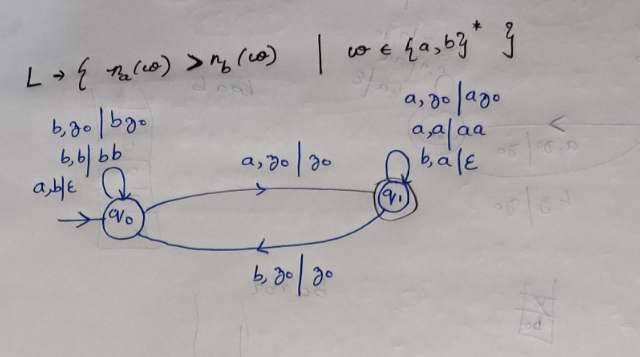 L → { n_a(ω) > n_b(ω) | ω ∈ {a,b}* }
b, z₀ | bz₀
b,b | bb
a,b | ε
a, z₀ | z₀
a, z₀ | az₀
a,a | aa
b,a | ε
q₀
q₁
b, z₀ | z₀